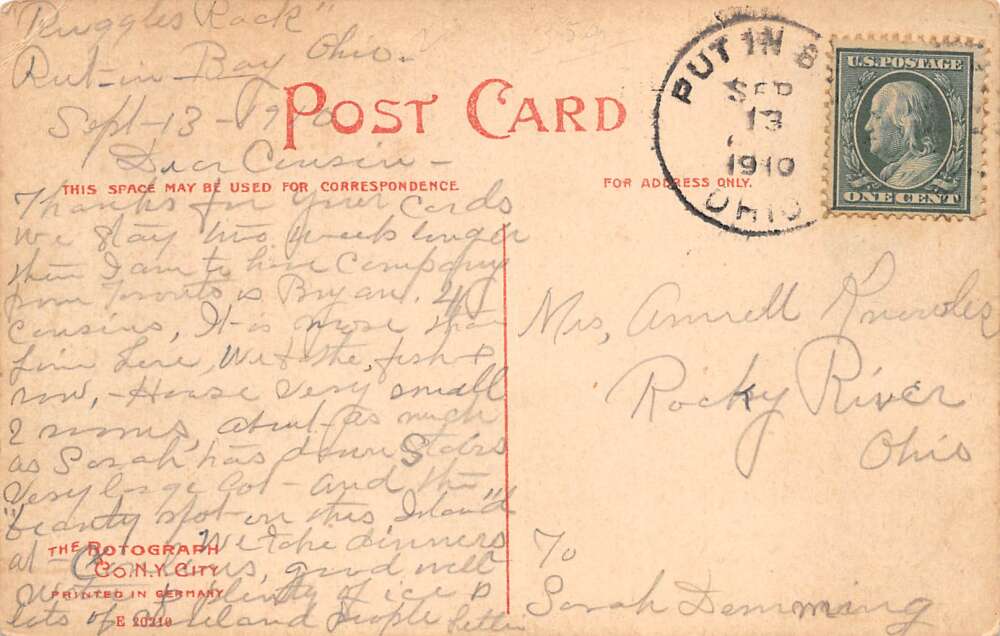 "Ruggles Rock"
Put-in-Bay Ohio.
Sept-13-1910
POST CARD
Dear Cousin -
THIS SPACE MAY BE USED FOR CORRESPONDENCE
FOR ADDRESS ONLY.
Thanks for your cards
We stay two weeks longer
then I am to have Company
from Toronto
Cousins, It is more than
fine here, We fish &
row, - House very small
2 rooms, about as much
as Sarah has down stairs
Very large lot - and the
"beauty spot on this Island"
at We take dinners
good well
water & plenty of ice &
lots of Island people
THE ROTOGRAPH
CO. N.Y. CITY
PRINTED IN GERMANY
E 20219
PUT IN B
SEP
13
1910
OHIO
U.S. POSTAGE
ONE CENT
Mrs, Knowles
Rocky River
Ohio
To
Sarah Demming